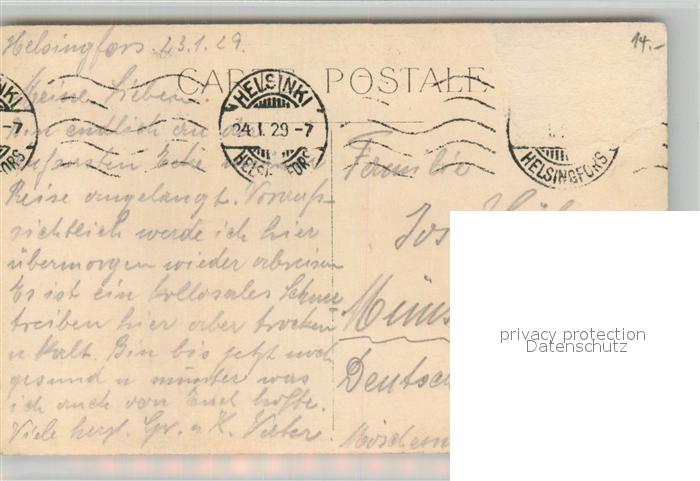 Helsingfors 23.1.29.
14.-
CARTE POSTALE
HELSINKI
24.I.29-7
HELSINGFORS
NKI
-7
FORS
HELSINGFORS
Meine Lieben.
Bin endlich an der
äussersten Ecke
Reise angelangt. Voraus-
sichtlich werde ich hier
übermorgen wieder abreisen
Es ist ein kollosales Schnee
treiben hier aber trocken
u kalt. Bin bis jetzt noch
gesund u munter was
ich auch von Euch hoffe.
Viele herzl. Gr. u K. Vater.
Familie
Jos
Müns
Deutsch
privacy protection
Datenschutz